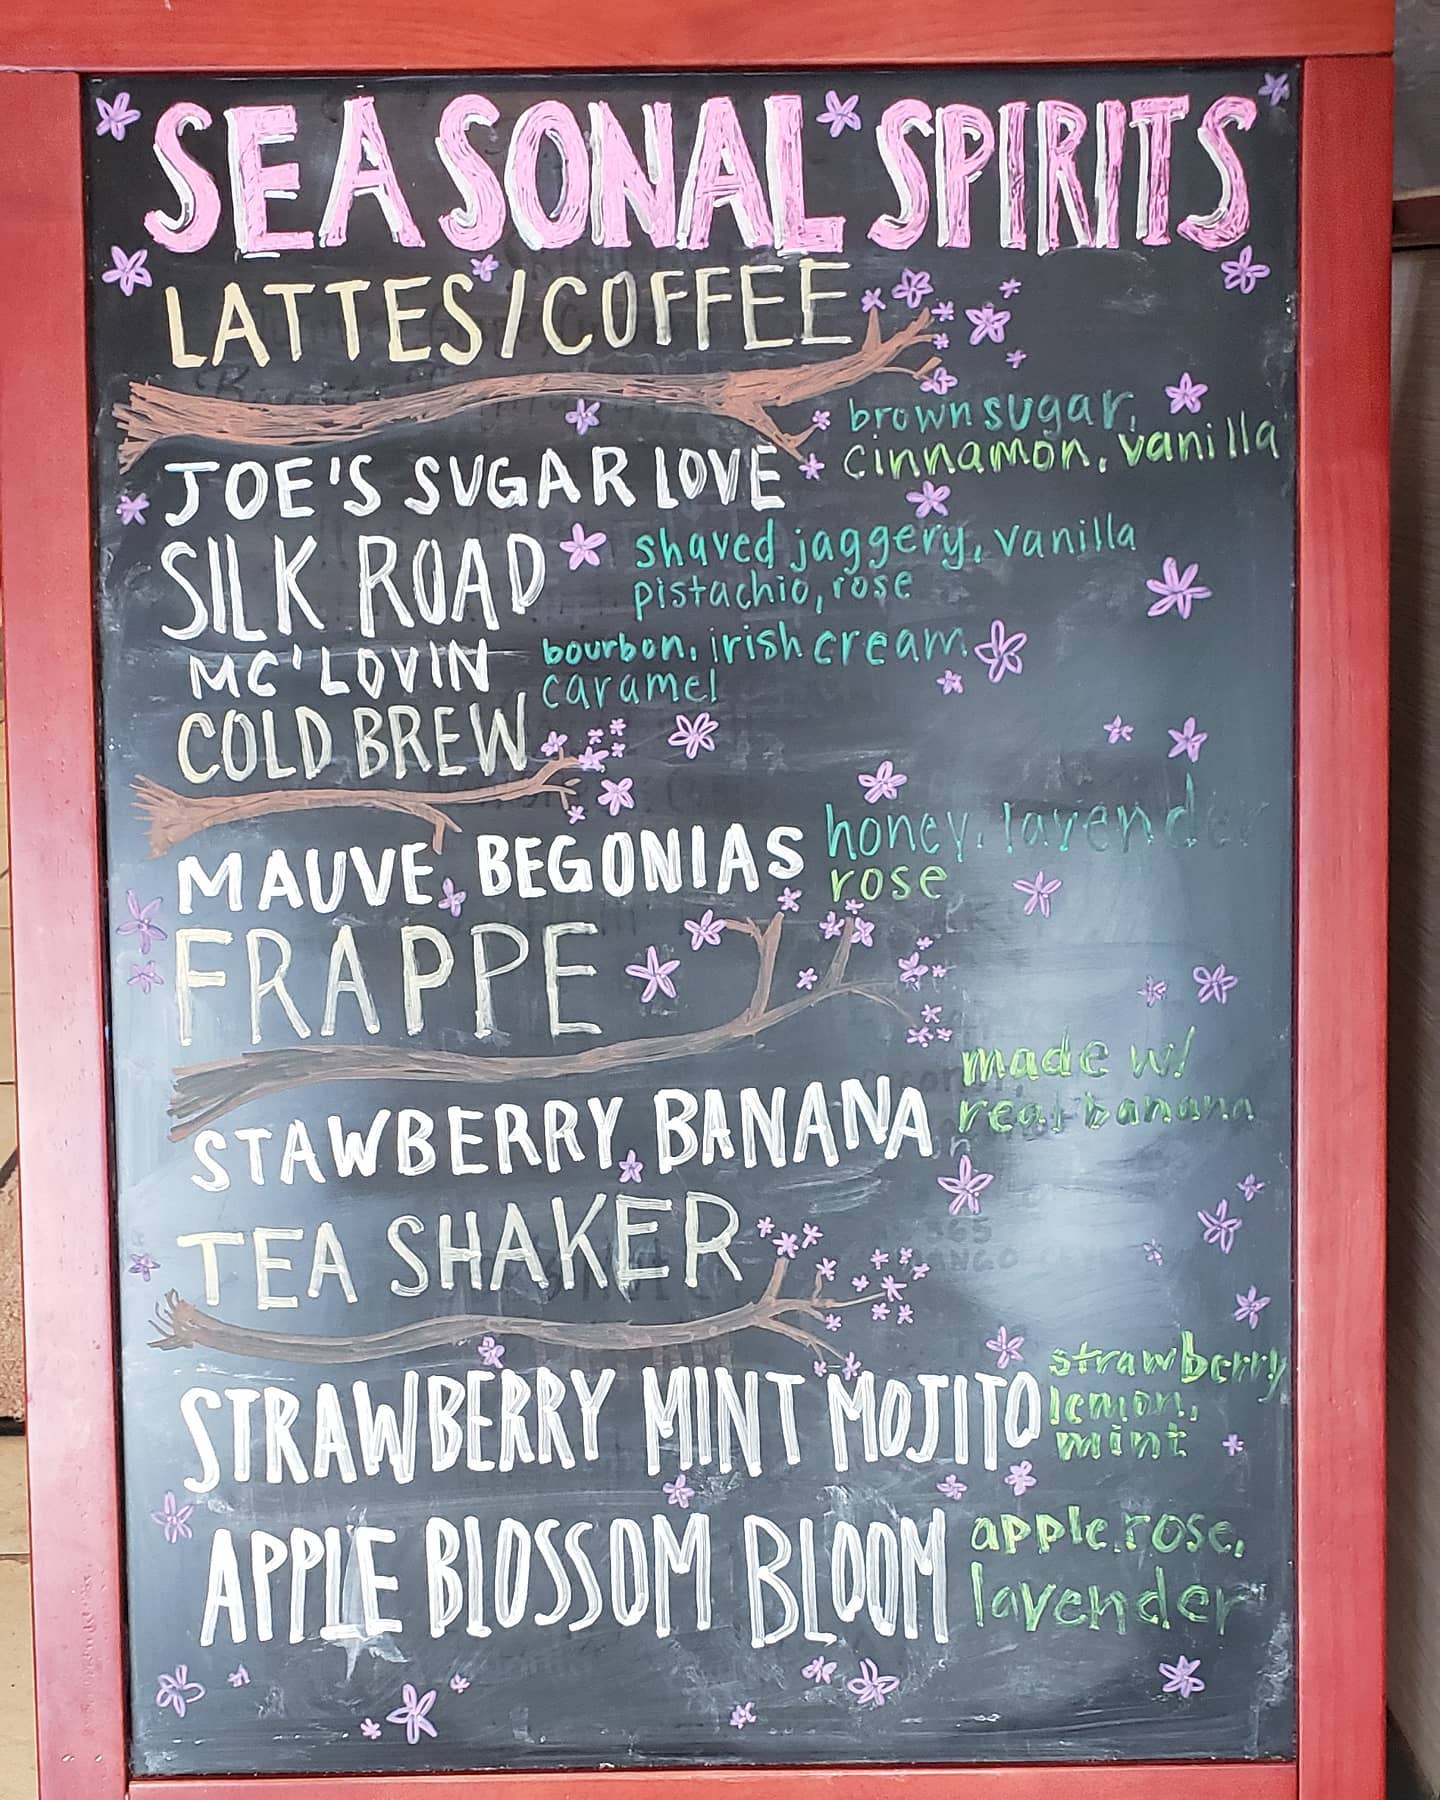 SEASONAL SPIRITS
LATTES/COFFEE
JOE'S SUGAR LOVE
brown sugar,
cinnamon, vanilla
SILK ROAD
shaved jaggery, vanilla
pistachio, rose
MC'LOVIN
bourbon, irish cream
caramel
COLD BREW
MAUVE BEGONIAS
honey, lavender
rose
FRAPPE
STAWBERRY BANANA
made w/
real banana
TEA SHAKER
STRAWBERRY MINT MOJITO
strawberry
lemon,
mint
APPLE BLOSSOM BLOOM
apple, rose,
lavender